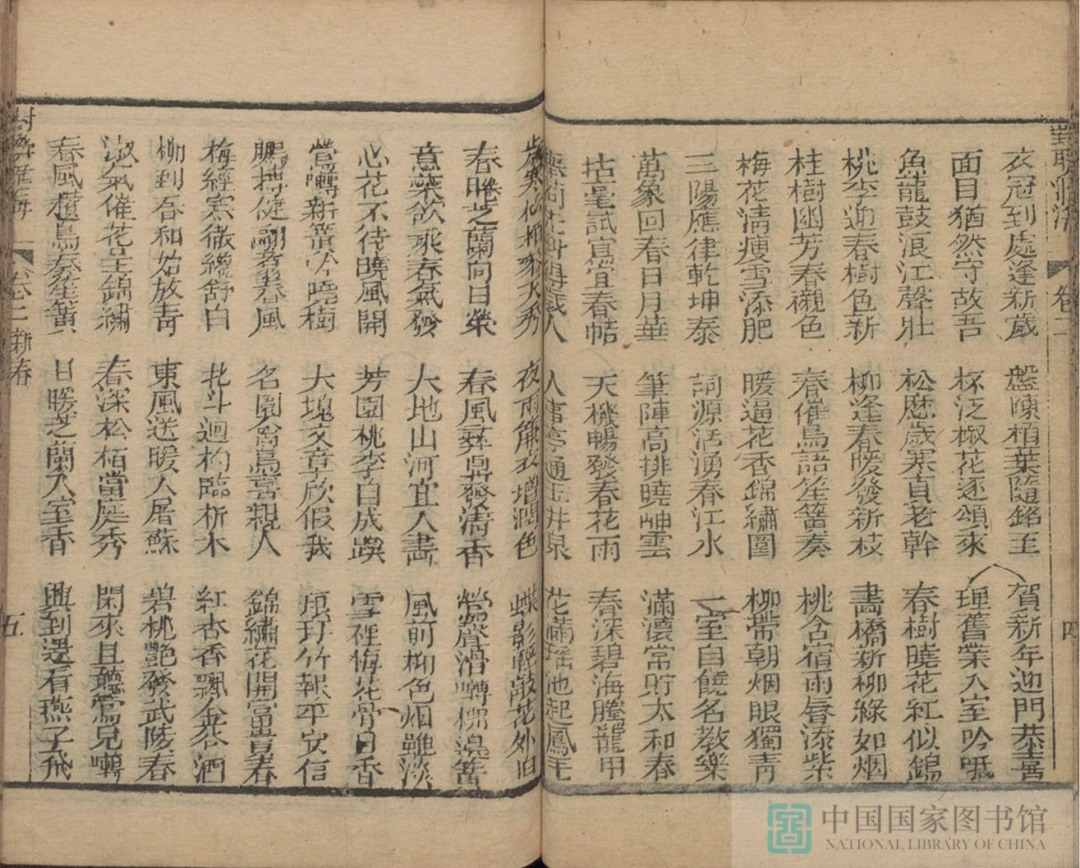 卷二
四
衣冠到處逢新歲 盤陳栢葉隨銘至 賀新年迎門恭喜
面目猶然守故吾 杯泛椒花逐頌來 理舊業入室吟哦
魚龍鼓浪江聲壯 松歷歲寒貞老幹 春樹曉花紅似錦
桃李迎春樹色新 柳逢春暖發新枝 畵橋新柳綠如烟
桂樹幽芳春襯色 春催鳥語笙簧奏 桃含宿雨唇添紫
梅花清瘦雪添肥 暖逼花香錦繡圍 柳帶朝烟眼獨青
三陽應律乾坤泰 詞源活湧春江水 一室自饒名教樂
萬象回春日月華 筆陣高排曉岫雲 滿瀼常貯太和春
拈毫試寫宜春帖 天機暢發春花雨 春深碧海騰龍甲
人事亭通玉井泉 花滿瑶池起鳳毛
歲寒松栢參天秀 夜雨簾衣增潤色 蝶影輕敲花外旧
春暖芝蘭向日榮 春風彛鼎發清香 鶯聲滑囀柳邉簧
意蘂欲乘春氣發 大地山河宜人畵 風前柳色烟雖淡
心花不待曉風開 芳園桃李自成蹊 雪裡梅花骨自香
鶯囀新簧吟曉樹 大塊文章欣假我 琅玕竹報平安信
鵬摶健翮奮春風 名園禽鳥喜親人 錦繡花開富貴春
梅經寒徹纔舒白 北斗迴杓臨析木 紅杏香飄金谷酒
柳到春和始放青 東風送暖入屠蘇 碧桃艷發武陵春
淑氣催花呈錦繡 春深松栢當庭秀 閑來且聽鶯兒囀
春風櫃鳥奏笙簧 日暖芝蘭入室香 興到還看燕子飛
卷二 新春
五
中国国家图书馆
NATIONAL LIBRARY OF CHINA